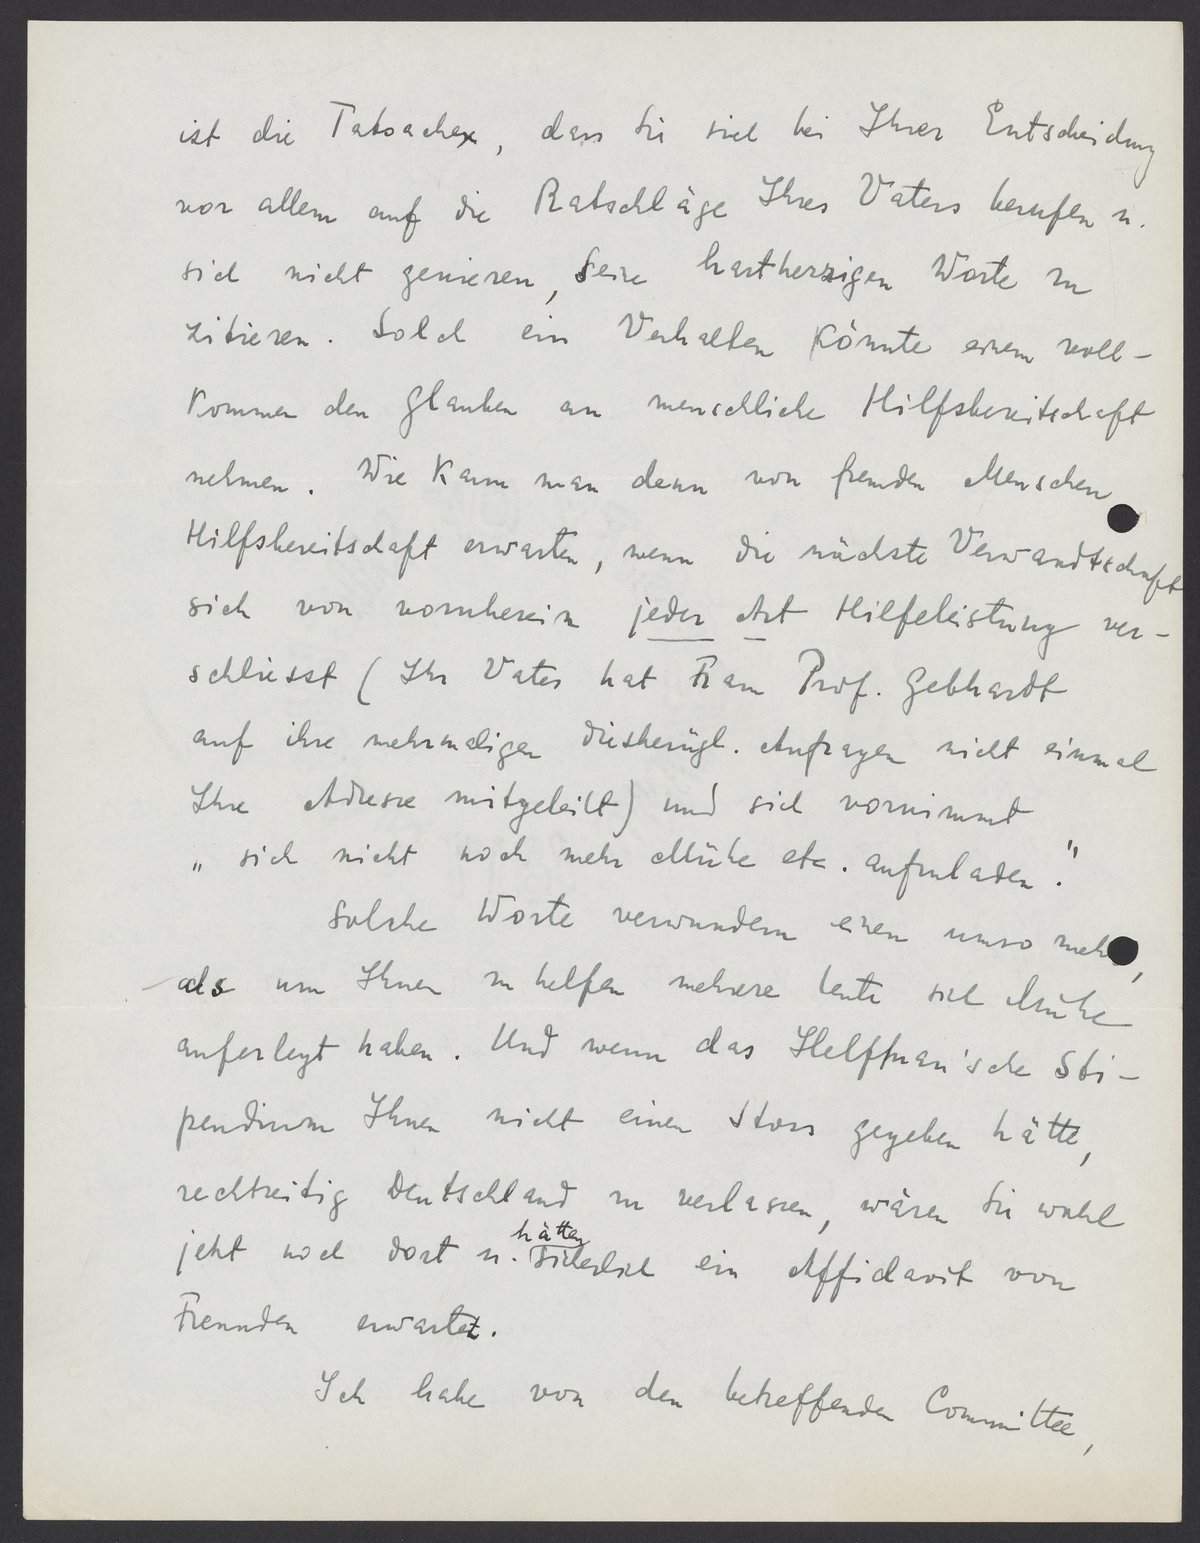 ist die Tatsache, dass Sie sich bei Ihrer Entscheidung
vor allem auf die Ratschläge Ihres Vaters berufen u.
sich nicht genieren, Seine hartherzigen Worte zu
zitieren. Solch ein Verhalten könnte einem voll-
kommen den Glauben an menschliche Hilfsbereitschaft
nehmen. Wie kann man denn von fremden Menschen
Hilfsbereitschaft erwarten, wenn die nächste Verwandtschaft
sich von vornherein jeder Art Hilfeleistung ver-
schliesst (Ihr Vater hat Frau Prof. Gebhardt
auf ihre mehrmaligen diesbezügl. Anfragen nicht einmal
Ihre Adresse mitgeteilt) und sich vornimmt
„sich nicht noch mehr Mühe etc. aufzuladen."
Solche Worte verwundern einen umso mehr,
als um Ihnen zu helfen mehrere Leute sich Mühe
auferlegt haben. Und wenn das Helffman'sche Sti-
pendium Ihnen nicht einen Stoss gegeben hätte,
rechtzeitig Deutschland zu verlassen, wären Sie wohl
jetzt noch dort u. hätten sicherlich ein Affidavit von
Fremden erwartet.
Ich habe von den betreffenden Committee,